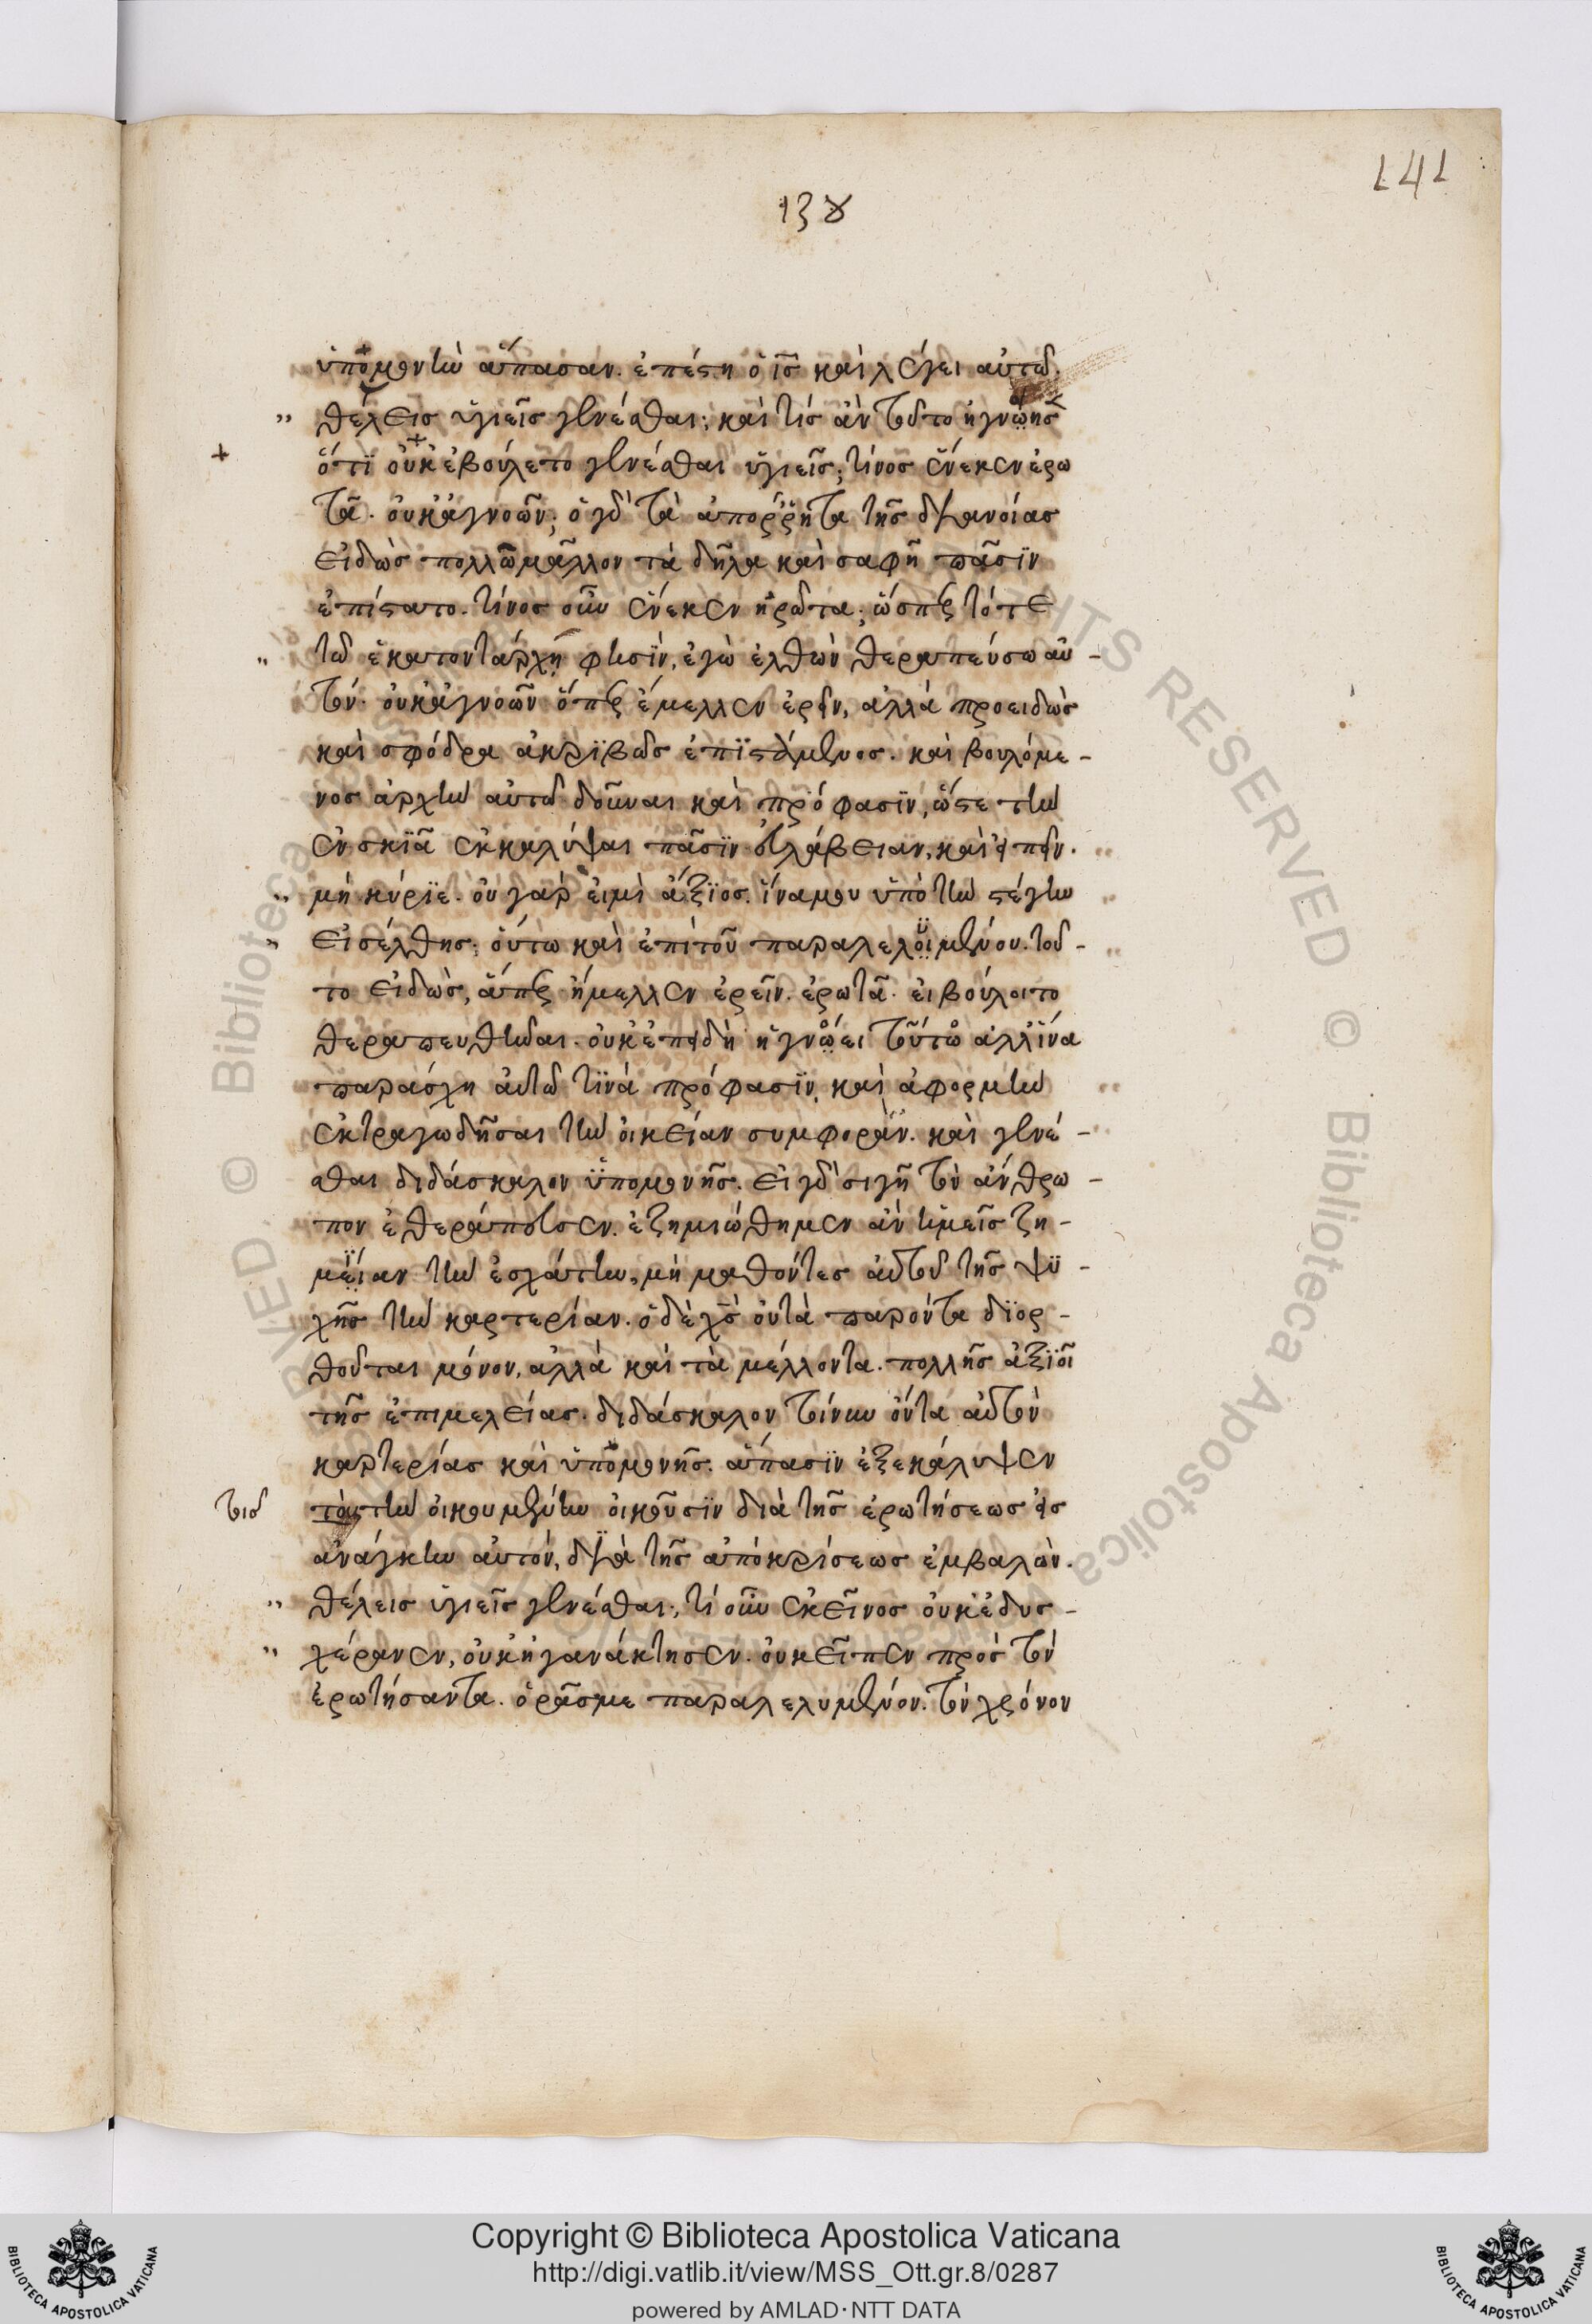 141
138
ὑπομονὴν ἅπασαν. ἐπέστη ὁ ις καὶ λέγει αὐτῷ.
„ θέλεις ὑγιεῖς γενέσθαι; καὶ τίς ἂν τοῦτο ἠγνώησε
+ ὅτι οὐκ ἐβούλετο γενέσθαι ὑγιεῖς; τίνος ἕνεκεν ἐρω
τᾶ. οὐκ ἀγνοῶν; ὁ γὰρ τὰ ἀπόρρητα τῆς διανοίας
εἰδὼς πολλῶ μᾶλλον τὰ δῆλα καὶ σαφῆ πᾶσιν
ἐπίστατο. τίνος οὖν ἕνεκεν ἠρώτα; ὥσπερ τότε
„ τῶ ἑκατοντάρχη φησὶν, ἐγὼ ἐλθὼν θεραπεύσω αὐ-
τόν. οὐκ ἀγνοῶν ὅπερ ἔμελλεν ἐρεῖν, ἀλλὰ προειδὼς
καὶ σφόδρα ἀκριβῶς ἐπιστάμενος. καὶ βουλόμε-
νος ἀρχὴν αὐτῶ δοῦναι καὶ πρόφασιν, ὥστε τὴν
ἐν σκιᾶ ἐκκαλύψαι πᾶσιν εὐλάβειαν, καὶ εἰπεῖν.
„ μὴ κύριε. οὐ γὰρ εἰμὶ ἄξιος. ἵνα μου ὑπὸ τὴν στέγην
„ εἰσέλθης; οὕτω καὶ ἐπὶ τοῦ παραλελοιμένου. τοῦ-
το εἰδὼς, ἅπερ ἤμελλεν ἐρεῖν. ἐρωτᾶ. εἰ βούλοιτο
θεραπευθῆναι. οὐκ ἐπειδὴ ἠγνώει τοῦτο ἀλλ' ἵνα
παράσχη αὐτῶ τινὰ πρόφασιν, καὶ ἀφορμὴν
ἐκτραγωδῆσαι τὴν οἰκείαν συμφοράν. καὶ γενέ-
σθαι διδάσκαλον ὑπομονῆς. εἰ γὰρ σιγῆ τὸν ἄνθρω-
πον ἐθεράπευσεν. ἐζημιώθημεν ἂν ἡμεῖς ζη-
μείαν τὴν ἐσχάτην, μὴ μαθόντες αὐτοῦ τῆς ψυ-
χῆς τὴν καρτερίαν. ὁ δὲ χς οὐ τὰ παρόντα διορ-
θοῦται μόνον, ἀλλὰ καὶ τὰ μέλλοντα. πολλῆς ἀξιοῖ
τῆς ἐπιμελείας. διδάσκαλον τοίνυν ὄντα αὐτὸν
καρτερίας καὶ ὑπομονῆς. ἅπασιν ἐξεκάλυψεν
τοῖς τὰς τὴν οἰκουμένην οἰκοῦσιν διὰ τῆς ἐρωτήσεως εἰς
ἀνάγκην αὐτόν, διὰ τῆς ἀποκρίσεως ἐμβαλών.
„ θέλεις ὑγιεῖς γενέσθαι; τί οὖν ἐκεῖνος οὐκ ἐδυσ-
„ χέρανεν, οὐκ ἠγανάκτησεν. οὐκ εἶπεν πρὸς τὸν
ἐρωτήσαντα. ὁρᾶς με παραλελυμένον. τὸν χρόνον
RIGHTS RESERVED © Biblioteca Apostolica Vaticana
Copyright © Biblioteca Apostolica Vaticana
http://digi.vatlib.it/view/MSS_Ott.gr.8/0287
powered by AMLAD·NTT DATA
BIBLIOTECA APOSTOLICA VATICANA
BIBLIOTECA APOSTOLICA VATICANA